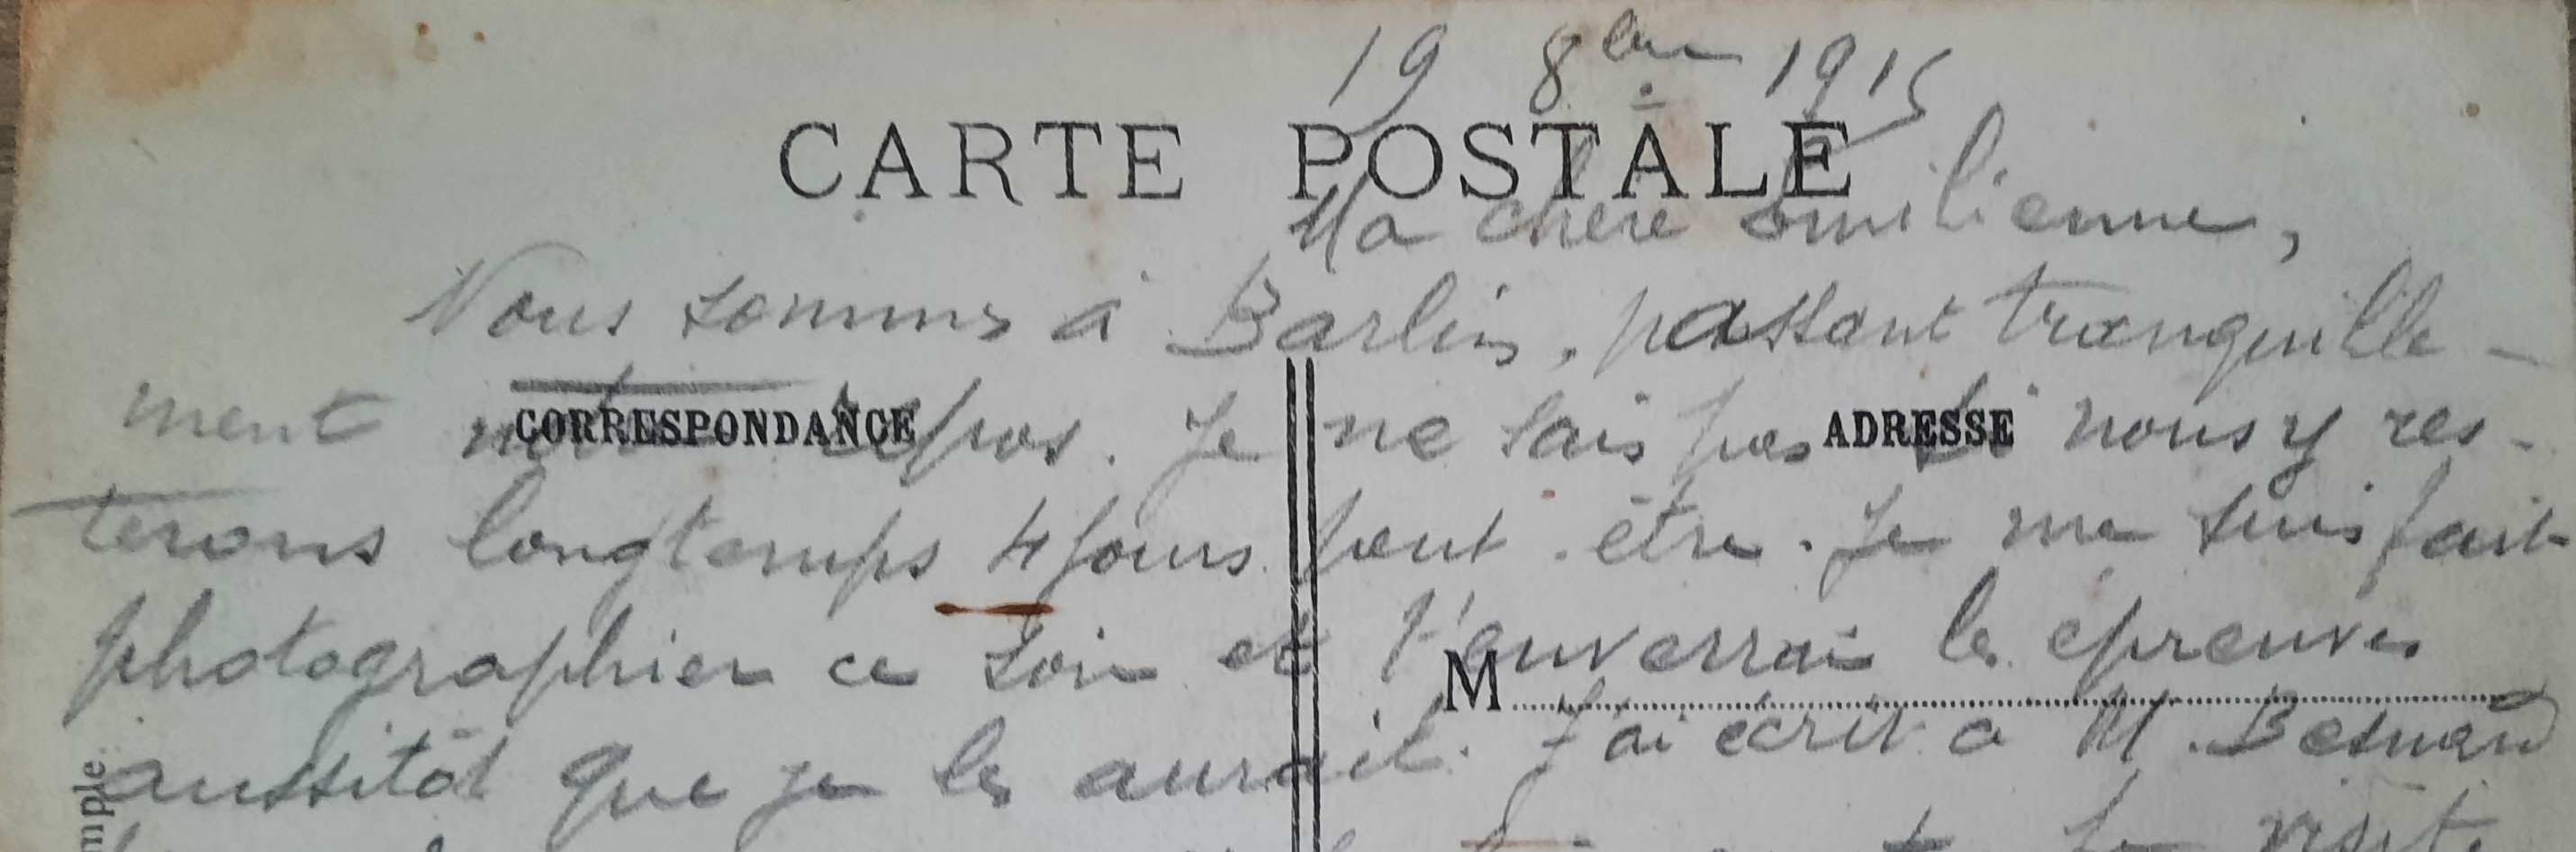 19 8bre 1915
CARTE POSTALE
Ma chère Emilienne,
Nous sommes à Barlin, passant tranquille-
ment notre repos. Je ne sais pas si nous y res-
CORRESPONDANCE
ADRESSE
terons longtemps 4 jours peut-être. Je me suis fait
photographier ce soir et t'enverrai les épreuves
M
aussitôt que je les aurait. J'ai écrit a M. Besnard
mple
visite